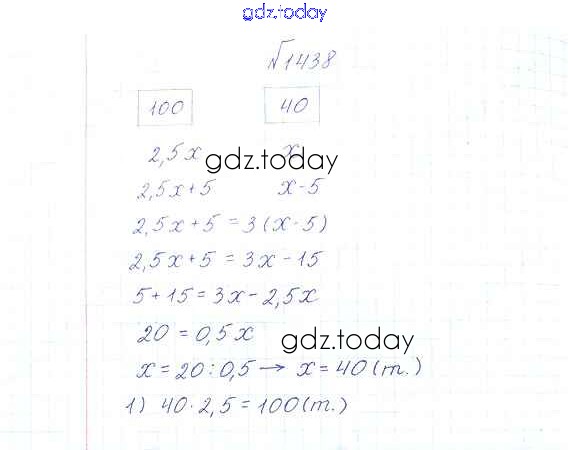 gdz.today
№1438
100 40
2,5x x
gdz.today
2,5x+5 x-5
2,5x+5=3(x-5)
2,5x+5=3x-15
5+15=3x-2,5x
20=0,5x
gdz.today
x=20:0,5→ x=40(т.)
1) 40·2,5=100(т.)